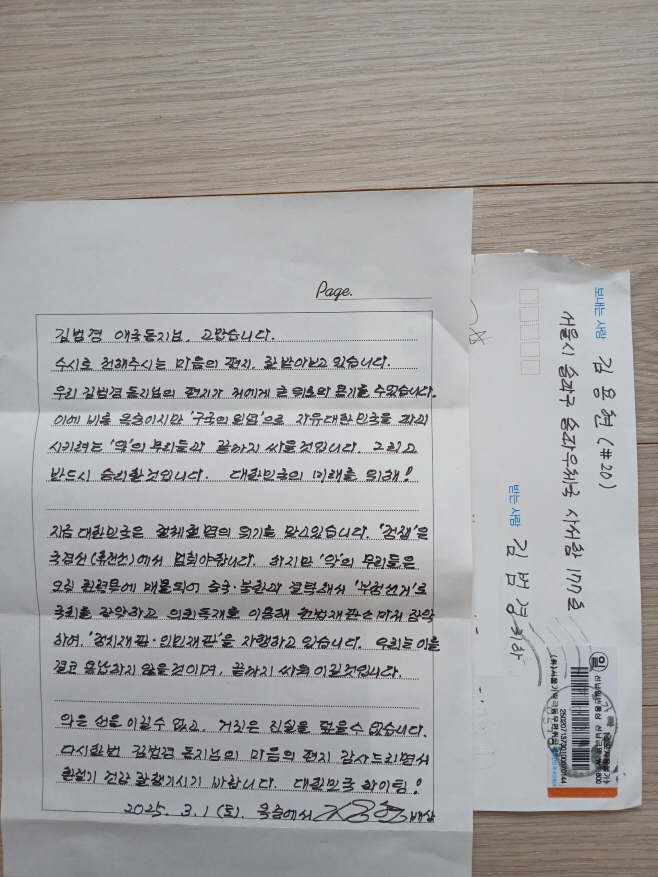 Page.
김범경 애국동지님, 고맙습니다.
수시로 전해주시는 마음의 편지, 잘 받아보고 있습니다.
우리 김범경 동지님의 편지가 저에게 큰 위로와 용기를 주었습니다.
이에 비록 옥중이지만 '구국의 일념'으로 자유대한민국을 파괴
시키려는 '악'의 무리들과 끝까지 싸울것입니다. 그리고
반드시 승리할것입니다. 대한민국의 미래를 위해!
지금 대한민국은 절체절명의 위기를 맞고있습니다. '정쟁'은
국경선(휴전선)에서 멈춰야합니다. 하지만 '악'의 무리들은
오직 권력욕에 매몰되어 중국·북한과 결탁해서 '부정선거'로
국회를 장악하고 의회독재를 이용해 헌법재판소마저 장악
하여, '정치재판·인민재판'을 자행하고 있습니다. 우리는 이를
결코 용납하지 않을것이며, 끝까지 싸워 이길것입니다.
악은 선을 이길수 없고, 거짓은 진실을 덮을수 없습니다.
다시한번 김범경 동지님의 마음의 편지 감사드리면서
환절기 건강 잘챙기시기 바랍니다. 대한민국 화이팅!
2025. 3. 1 (토). 옥중에서 김용현 배상
보내는 사람
김용현 (#20)
서울시 송파구 송파우체국 사서함 177호
받는 사람
김범경 귀하